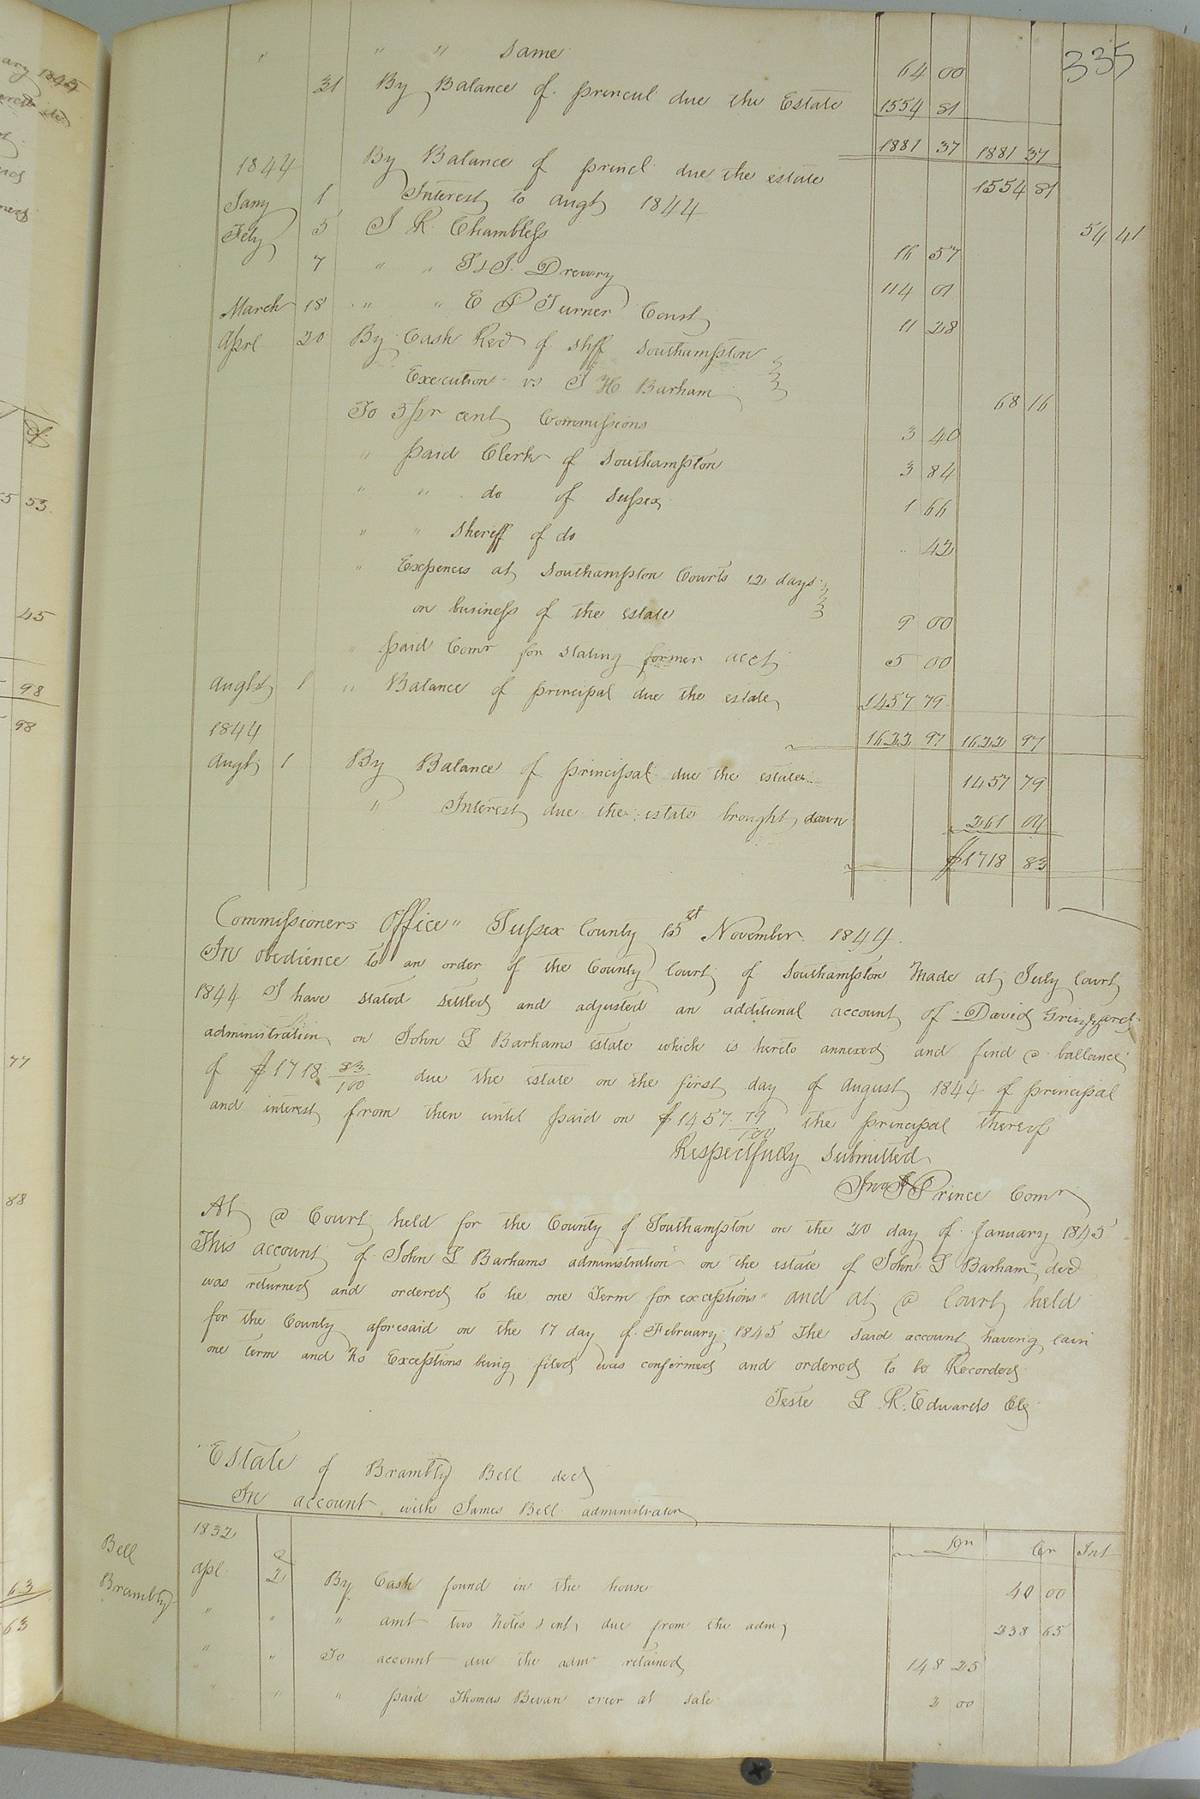 335
" " Same 64 00
31 By Balance of princul due the Estate 1554 81
1881 37 1881 37
1844 By Balance of princl due the estate 1554 81
Jany 1 Interest to augt 1844 54 41
Feby 5 J R Chambless 16 57
7 " " Drewry 114 01
March 18 " " E P Turner Const 11 28
Aprl 20 By Cash Recd of Shff Southampton
Execution vs J H Barham 68 16
To 5 pr cent Commissions 3 40
" paid Clerk of Southampton 3 84
" " do of Sussex 1 66
" " Sheriff of do " 42
" Expences at Southampton Courts 12 days
on business of the estate 9 00
" paid Comr for stating former acct 5 00
Augst 1 " Balance of principal due the estate 1457 79
1844 1622 97 1622 97
Augt 1 By Balance of principal due the estate 1457 79
" Interest due the estate brought down 261 04
$1718 83
Commissioners Office" Sussex County November 1844.
In obedience to an order of the County Court of Southampton made at July Court
1844 I have stated settled and adjusted an additional account of David
administration on John L Barhams estate which is hereto annexed and find a ballance
of $1718 83/100 due the estate on the first day of august 1844 of principal
and interest from then until paid on $1457 79/100 the principal thereof
Respectfully Submitted
Prince Comr
At a Court held for the County of Southampton on the 20 day of January 1845
This account of John L Barhams administration on the estate of John L Barham decd
was returned and ordered to lie one Term for exceptions" and at a Court held
for the County aforesaid on the 17 day of February 1845 The said account having lain
one term and No Exceptions being filed was confirmed and ordered to be Recorded
Teste L. R. Edwards Clk
Estate of Brambly Bell decd
In account with James Bell administrator
Bell
Brambly
1832 Dr Cr Int
Apl 2 By Cash found in the house 40 00
" " " amt two Notes & int due from the adm 238 65
" " To account due the admr retained 148 25
" " paid Thomas Bevan crier at sale 2 00